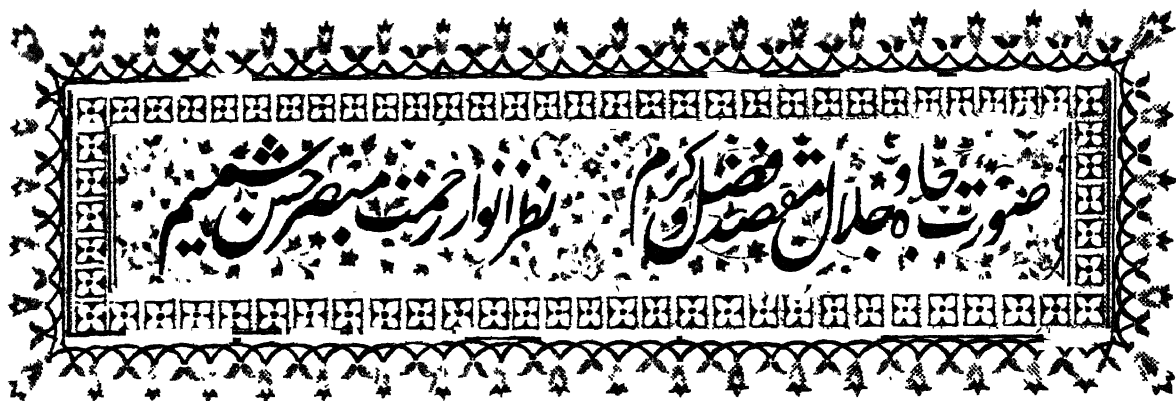 صورت جاه و جلالت مقصد فضل و کرم نظر انوار رحمت مبصر حسن شمیم